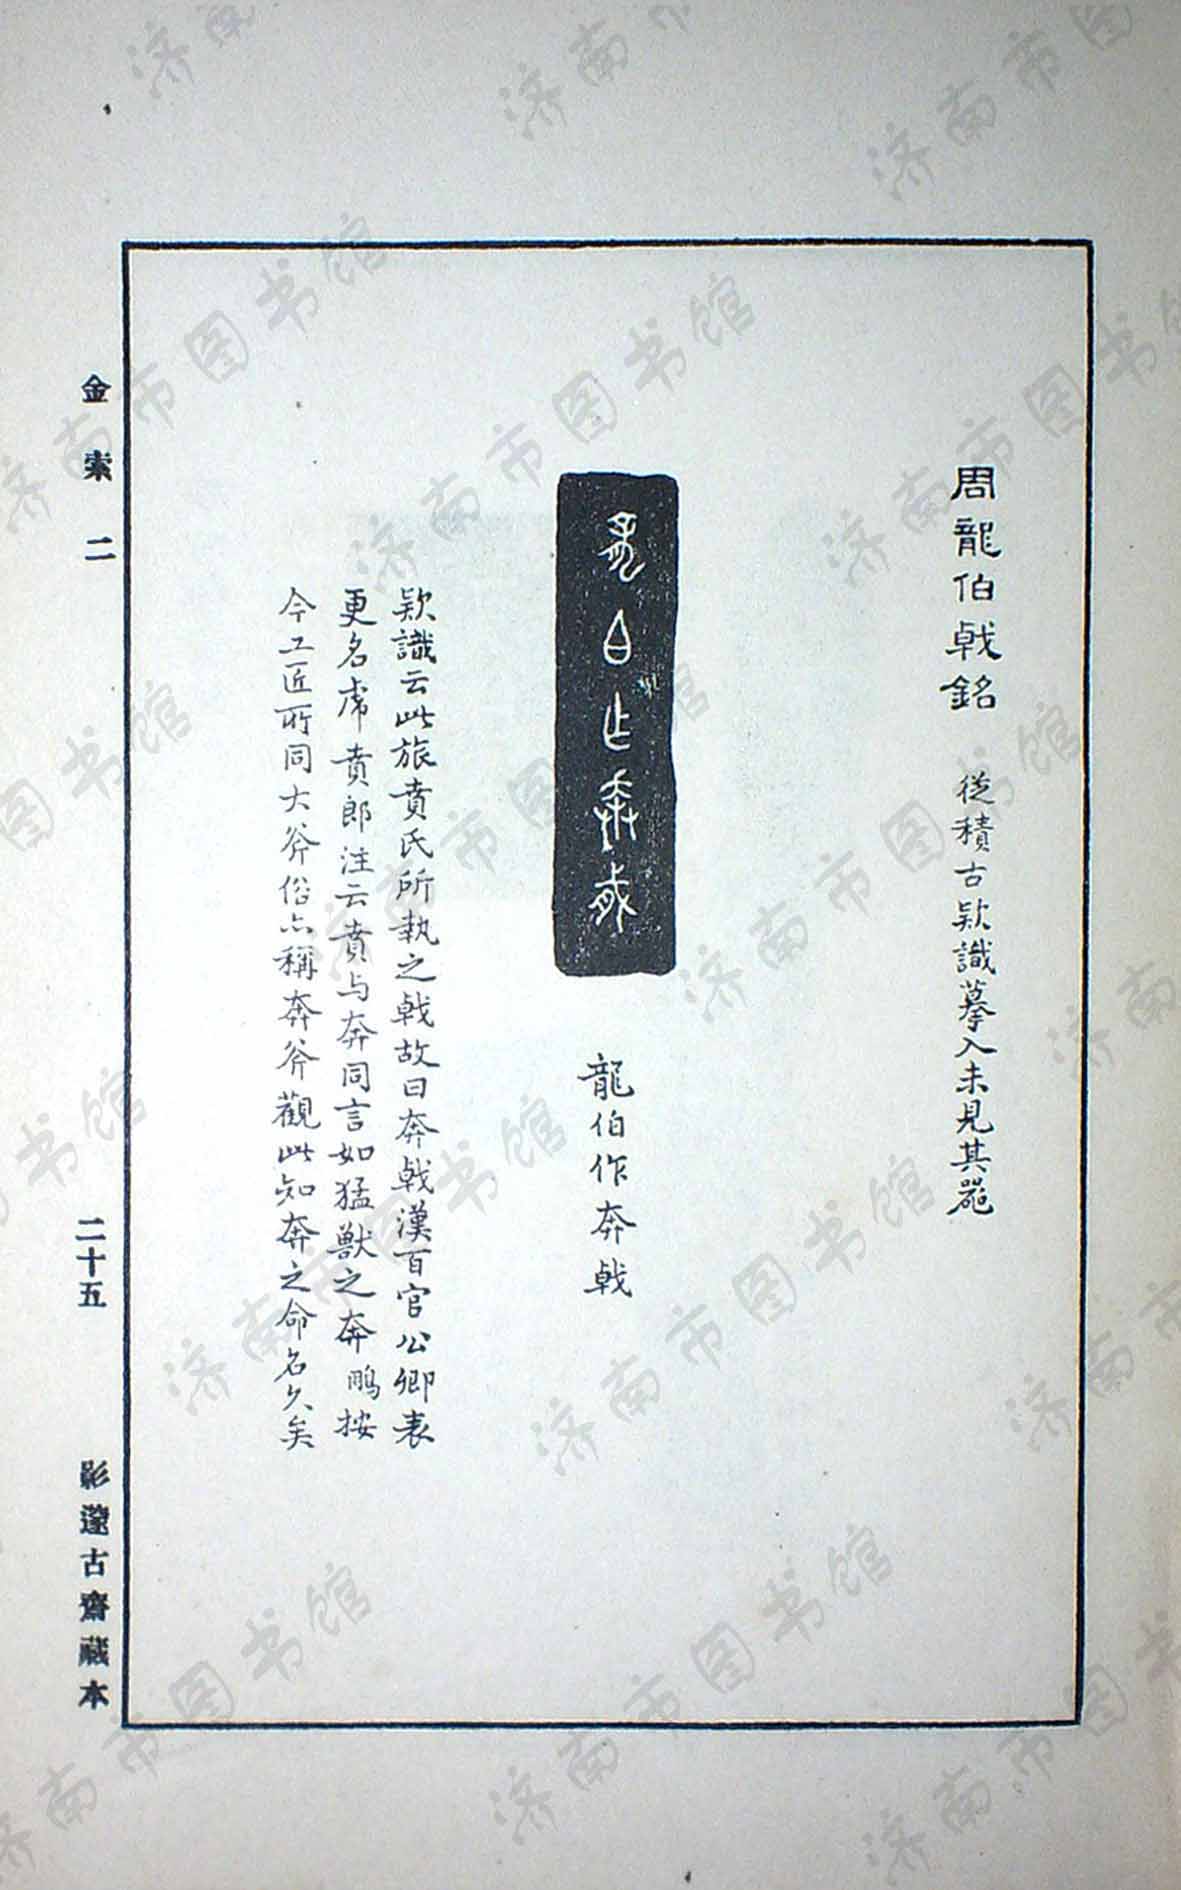 周龍伯戟銘 從積古欵識摹入未見其器
龍伯作奔戟
欵識云此旅賁氏所執之戟故曰奔戟漢百官公卿表
更名虎賁郎注云賁与奔同言如猛獸之奔鵬按
今工匠所同大斧俗亦稱奔斧觀此知奔之命名久矣
金索二
二十五
影邃古齋藏本
济南市图书馆